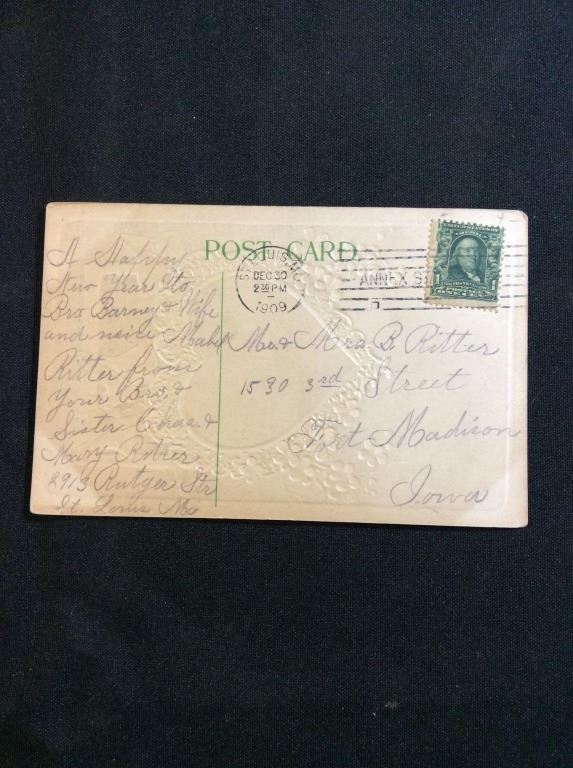 POST CARD.
ST. LOUIS, MO.
DEC 30
2 30 PM
1909
ANNEX S
5
A Happy
New Year to
Bro Barney & Wife
and neice Mabel
Ritter from
Your Bro &
Sister Chas &
Mary Ritter
2913 Rutger Str
St Louis Mo
Mr. & Mrs B. Ritter
1530 3rd Street
Fort Madison
Iowa